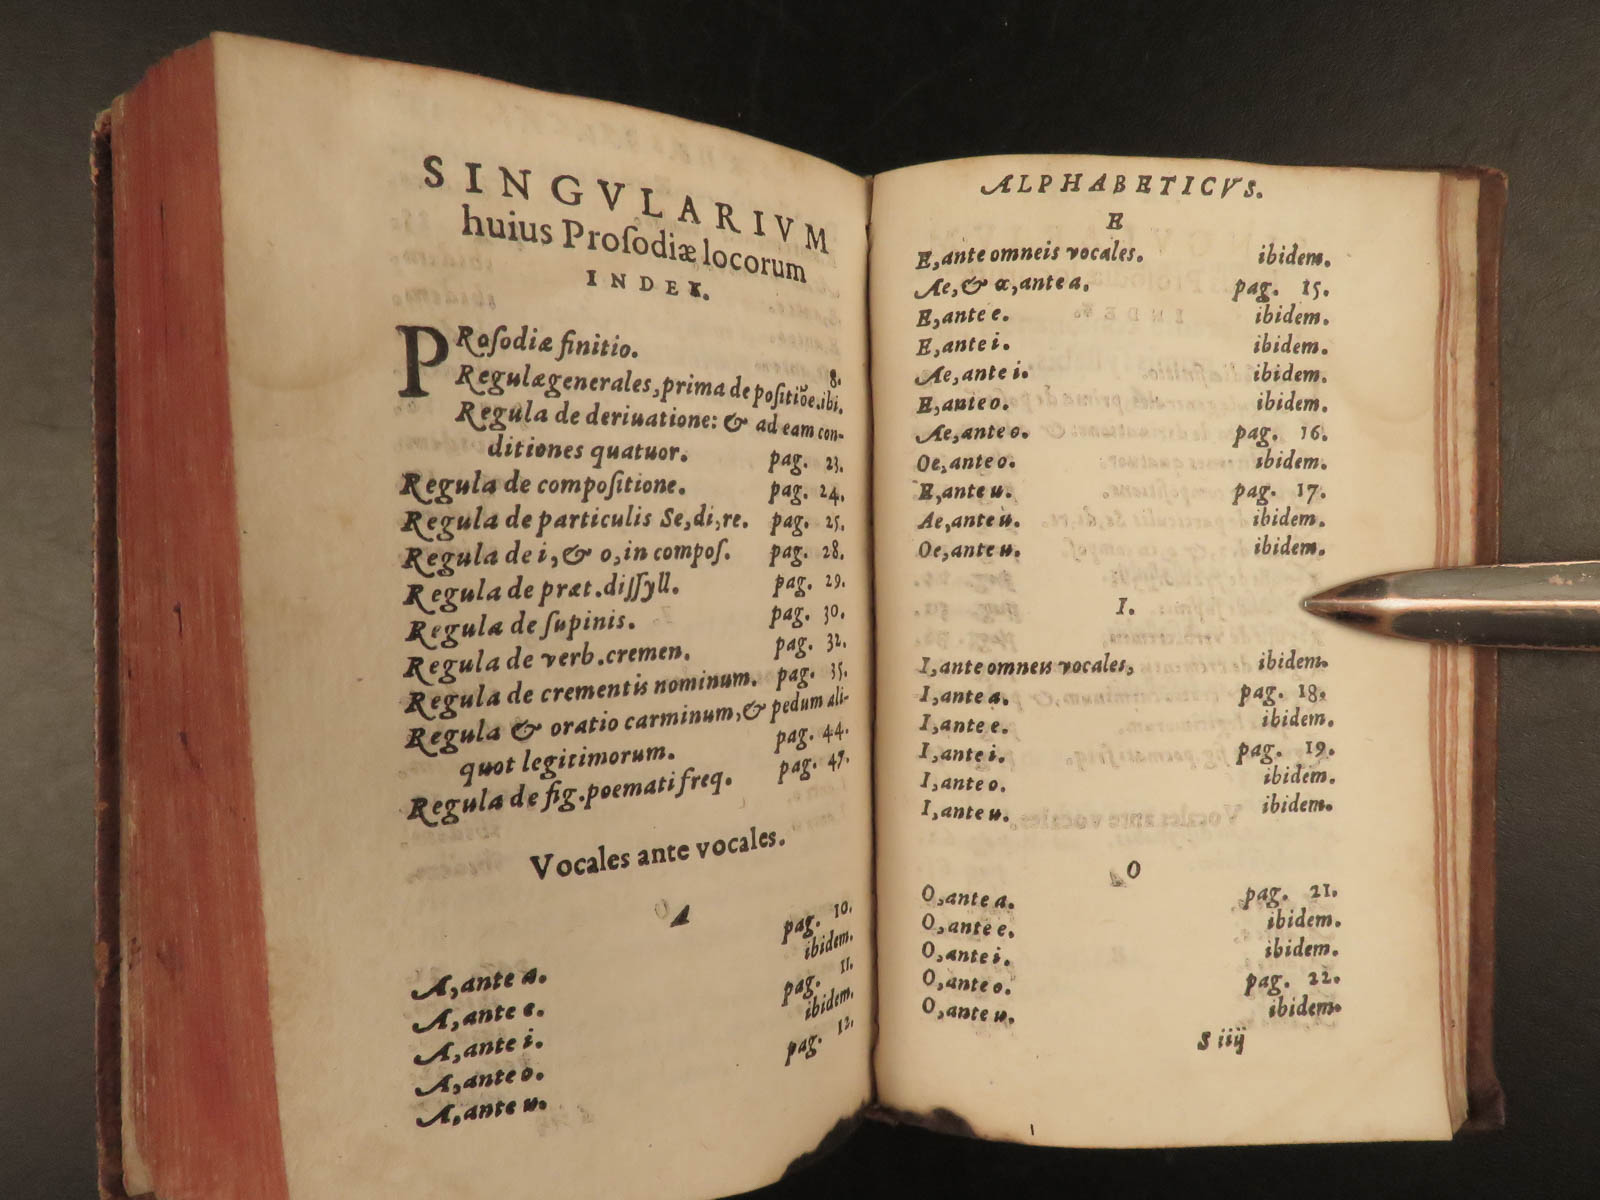 SINGVLARIVM
huius Proſodiæ locorum
INDEX.
PRoſodiæ finitio. 8.
Regulæ generales, prima de poſitiõe. ibi.
Regula de deriuatione: & ad eam con-
ditiones quatuor. pag. 23.
Regula de compoſitione. pag. 24.
Regula de particulis Se, di, re. pag. 25.
Regula de i, & o, in compoſ. pag. 28.
Regula de præt. diſſyll. pag. 29.
Regula de ſupinis. pag. 30.
Regula de verb. cremen. pag. 32.
Regula de crementis nominum. pag. 35.
Regula & oratio carminum, & pedum ali-
quot legitimorum. pag. 44.
Regula de fig. poemati freq. pag. 47.
Vocales ante vocales.
A
A, ante a. pag. 10.
A, ante e. ibidem.
A, ante i. pag. 11.
A, ante o. ibidem.
A, ante u. pag. 12.
ALPHABETICVS.
E
E, ante omneis vocales. ibidem.
Ae, & œ, ante a. pag. 15.
E, ante e. ibidem.
E, ante i. ibidem.
Ae, ante i. ibidem.
E, ante o. ibidem.
Ae, ante o. pag. 16.
Oe, ante o. ibidem.
E, ante u. pag. 17.
Ae, ante u. ibidem.
Oe, ante u. ibidem.
I.
I, ante omneis vocales, ibidem.
I, ante a. pag. 18.
I, ante e. ibidem.
I, ante i. pag. 19.
I, ante o. ibidem.
I, ante u. ibidem.
O
O, ante a. pag. 21.
O, ante e. ibidem.
O, ante i. ibidem.
O, ante o. pag. 22.
O, ante u. ibidem.
S iiij